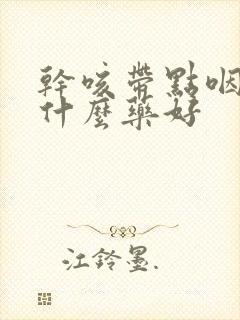 幹咳帶點咽
什麼藥好
江鈴墨.